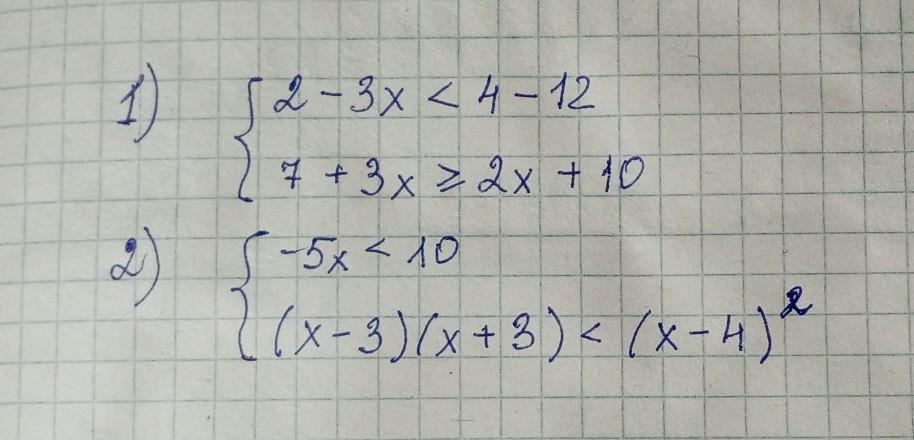 1) { 2 - 3x < 4 - 12
7 + 3x ≥ 2x + 10
2) { -5x < 10
(x - 3)(x + 3) < (x - 4)²